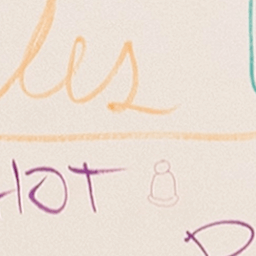 les
HOT